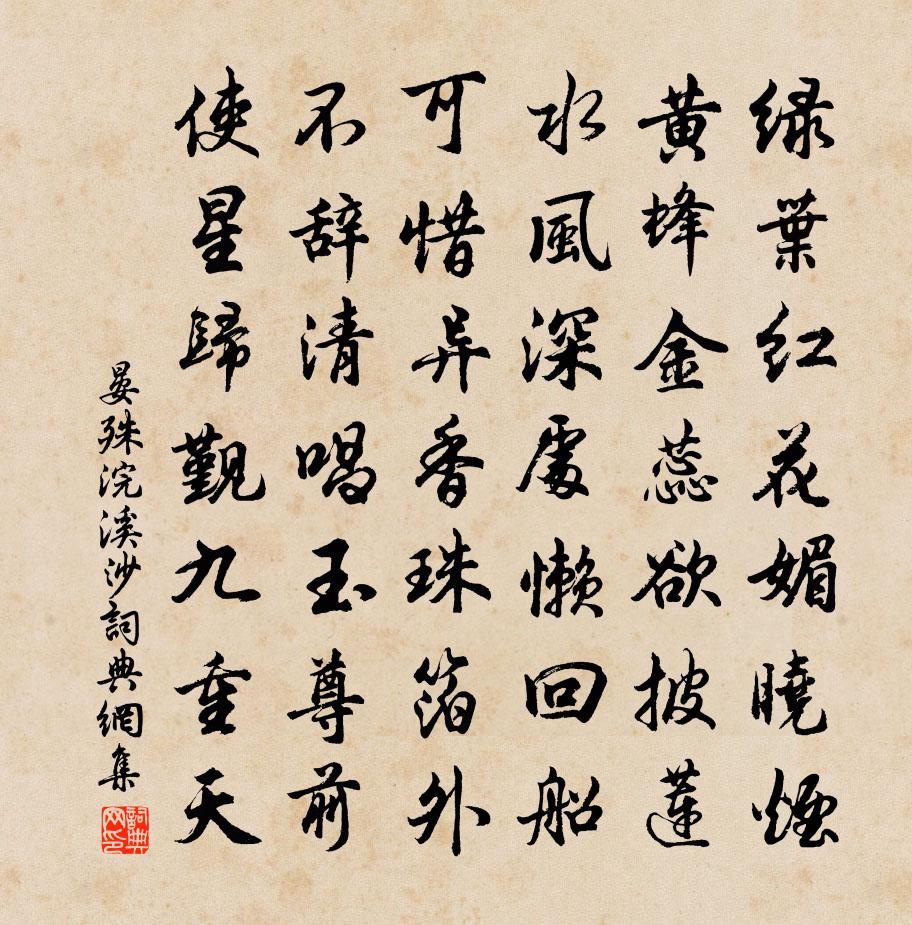 绿葉红花媚曉煙
黄蜂金蕊欲披蓮
水風深處懒回船
可惜异香珠箔外
不辞清唱玉尊前
使星歸觐九重天
晏殊浣溪沙詞典網集
詞典网印